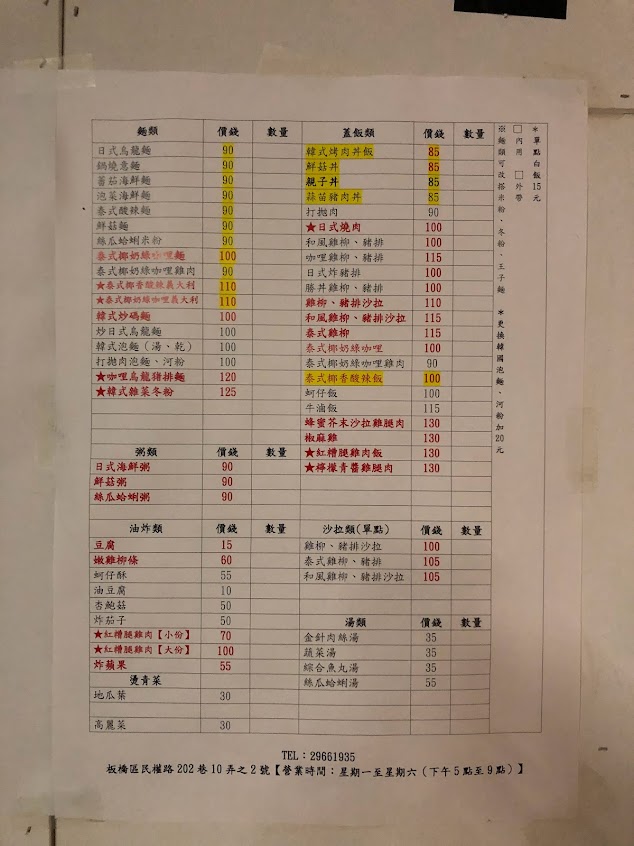 麵類 價錢 數量
日式烏龍麵 90
鍋燒意麵 90
蕃茄海鮮麵 90
泡菜海鮮麵 90
泰式酸辣麵 90
鮮菇麵 90
絲瓜蛤蜊米粉 90
泰式椰奶綠咖哩麵 100
泰式椰奶綠咖哩雞肉 90
★泰式椰香酸辣義大利 110
★泰式椰奶綠咖哩義大利 110
韓式炒碼麵 100
炒日式烏龍麵 100
韓式泡麵（湯、乾） 100
打拋肉泡麵、河粉 100
★咖哩烏龍豬排麵 120
★韓式雜菜冬粉 125
粥類 價錢 數量
日式海鮮粥 90
鮮菇粥 90
絲瓜蛤蜊粥 90
油炸類 價錢 數量
豆腐 15
嫩雞柳條 60
蚵仔酥 55
油豆腐 10
杏鮑菇 50
炸茄子 50
★紅糟腿雞肉【小份】 70
★紅糟腿雞肉【大份】 100
炸蘋果 55
燙青菜
地瓜葉 30
高麗菜 30
蓋飯類 價錢 數量
韓式烤肉丼飯 85
鮮菇丼 85
親子丼 85
蒜苗豬肉丼 85
打拋肉 90
★日式燒肉 100
和風雞柳、豬排 100
咖哩雞柳、豬排 115
日式炸豬排 100
勝丼雞柳、豬排 100
雞柳、豬排沙拉 110
和風雞柳、豬排沙拉 115
泰式雞柳 115
泰式椰奶綠咖哩 100
泰式椰奶綠咖哩雞肉 90
泰式椰香酸辣飯 100
蚵仔飯 100
牛滷飯 115
蜂蜜芥末沙拉雞腿肉 130
椒麻雞 130
★紅糟腿雞肉飯 130
★檸檬青醬雞腿肉 130
沙拉類(單點) 價錢 數量
雞柳、豬排沙拉 100
泰式雞柳、豬排 105
和風雞柳、豬排沙拉 105
湯類 價錢 數量
金針肉絲湯 35
蔬菜湯 35
綜合魚丸湯 35
絲瓜蛤蜊湯 55
*單點白飯15元
□內用 □外帶
※麵類可改搭米粉、冬粉、王子麵 *更換韓國泡麵、河粉加20元
TEL：29661935
板橋區民權路202巷10弄之2號【營業時間：星期一至星期六（下午5點至9點）】